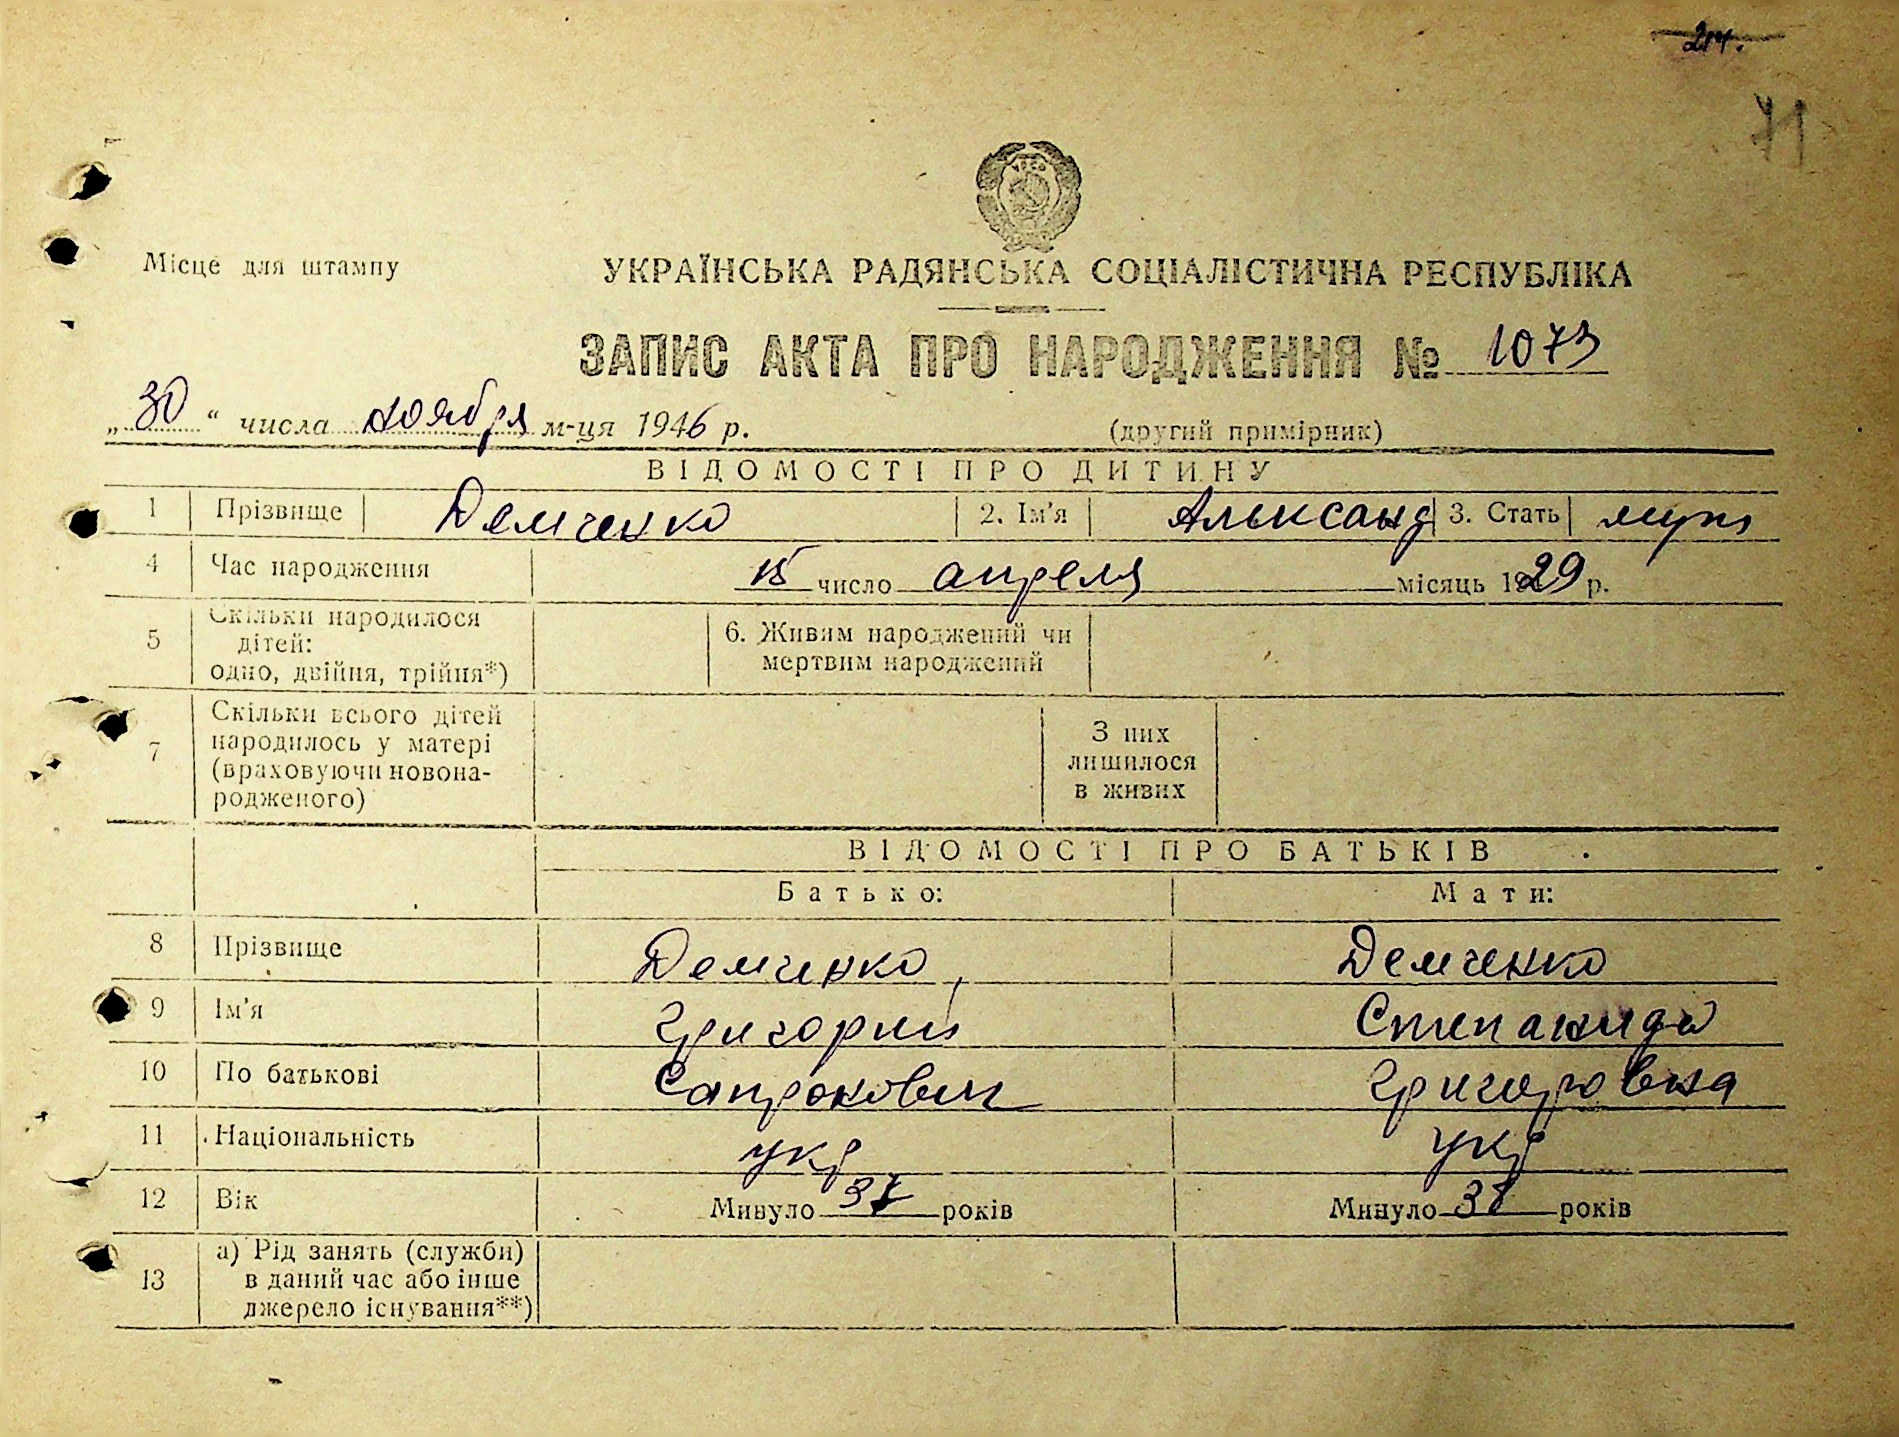 71
УРСР
Місце для штампу
УКРАЇНСЬКА РАДЯНСЬКА СОЦІАЛІСТИЧНА РЕСПУБЛІКА
ЗАПИС АКТА ПРО НАРОДЖЕННЯ № 1073
„30“ числа ноября м-ця 1946 р. (другий примірник)
ВІДОМОСТІ ПРО ДИТИНУ
1 Прізвище Демченко 2. Ім'я Александ 3. Стать муж
4 Час народження 15 число апреля місяць 1929 р.
5 Скільки народилося дітей: одно, двійня, трійня*) 6. Живим народжений чи мертвим народжений
7 Скільки всього дітей народилось у матері (враховуючи новонародженого) З них лишилося в живих
ВІДОМОСТІ ПРО БАТЬКІВ
Батько: Мати:
8 Прізвище Демченко Демченко
9 Ім'я Григорий Степанида
10 По батькові Сапронович Григоровна
11 Національність укр укр
12 Вік Минуло 37 років Минуло 38 років
13 а) Рід занять (служби) в даний час або інше джерело існування**)